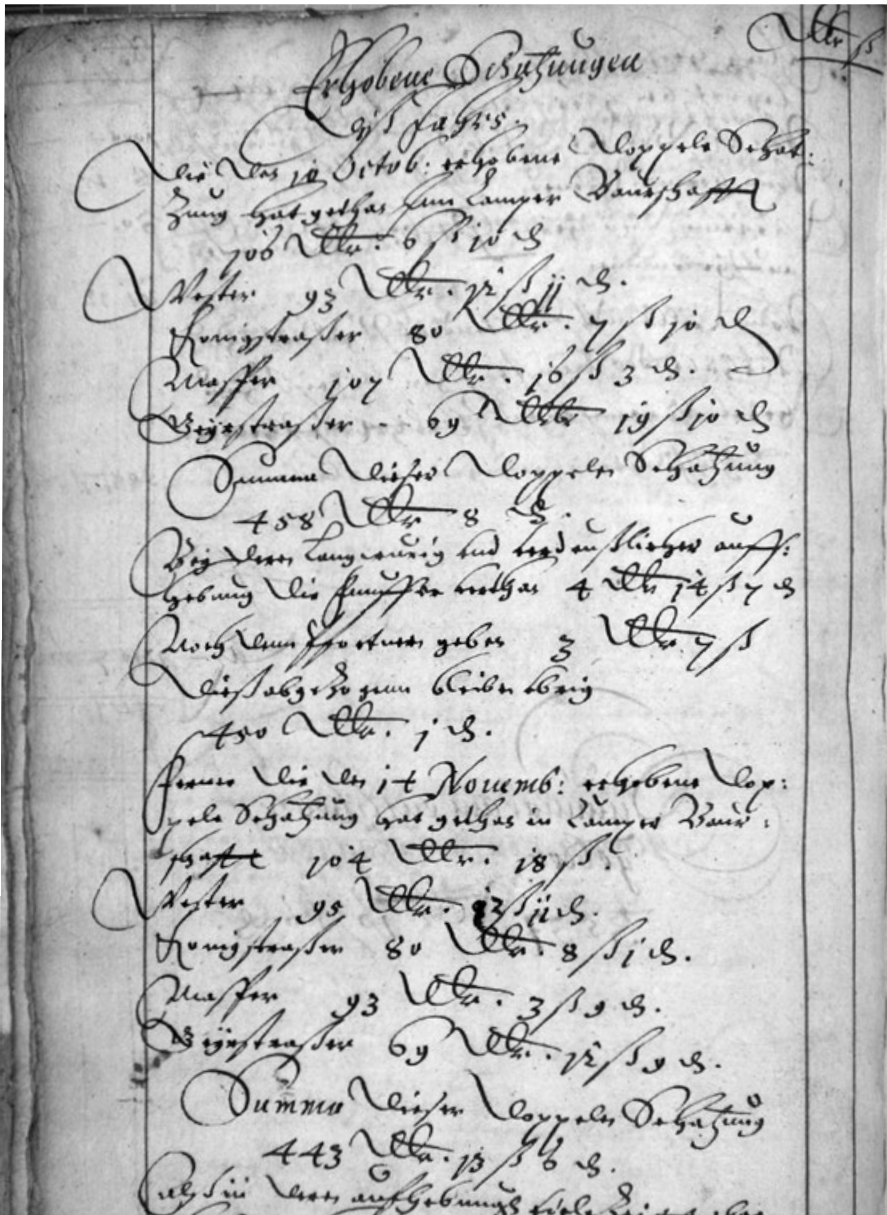 Dlr ß
Erhobene Schatzungen
diß Jahrs.
Die den 10 Octob: erhobene doppele Schat:
zung hat gethan inn Lamper Baurschafft
106 Dlr. 6 ß 10 d
Wester 93 Dlr. 12 ß 11 d.
Konigstraßer 80 Dlr. 7 ß 10 d
Masser 107 Dlr. 16 ß 3 d.
Geyrstraßer - 69 Dlr 19 ß 10 d
Summa dieser doppelen Schatzung
458 Dlr 8 d.
Bey deren Langwurig und verdrußlicher auff:
hebung die verthan 4 Dlr 14 ß 7 d
Noch dem Pfortner geben 3 Dlr. 7 ß
Dieß abgezogenn bleibn ubrig
450 Dlr. 1 d.
Ferner die den 14 Novemb: erhobene dop:
pele Schatzung hat gethan in Lamper Baur:
schafft 104 Dlr. 18 ß.
Wester 95 Dlr. ß 11 d.
Konigstraßer 80 Dlr. 8 ß 1 d.
Masser 93 Dlr. 3 ß 9 d.
Geyrstraßer 69 Dlr. 12 ß 9 d.
Summa dieser doppelen Schatzung
443 Dlr. 13 ß 6 d.
deren auffhebung